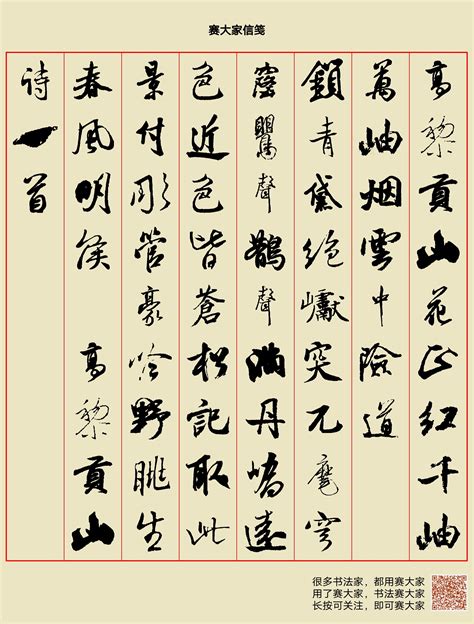 赛大家信笺
高黎貢山花正紅千岫
萬岫烟雲中險道
鎖青黛絶巘突兀摩穹
窿鸎聲鵲聲滿丹嶂遠
色近色皆蒼松記取此
景付彤管豪吟野眺生
春風明侯 高黎貢山
詩一首
很多书法家，都用赛大家
用了赛大家，书法赛大家
长按可关注，即可赛大家